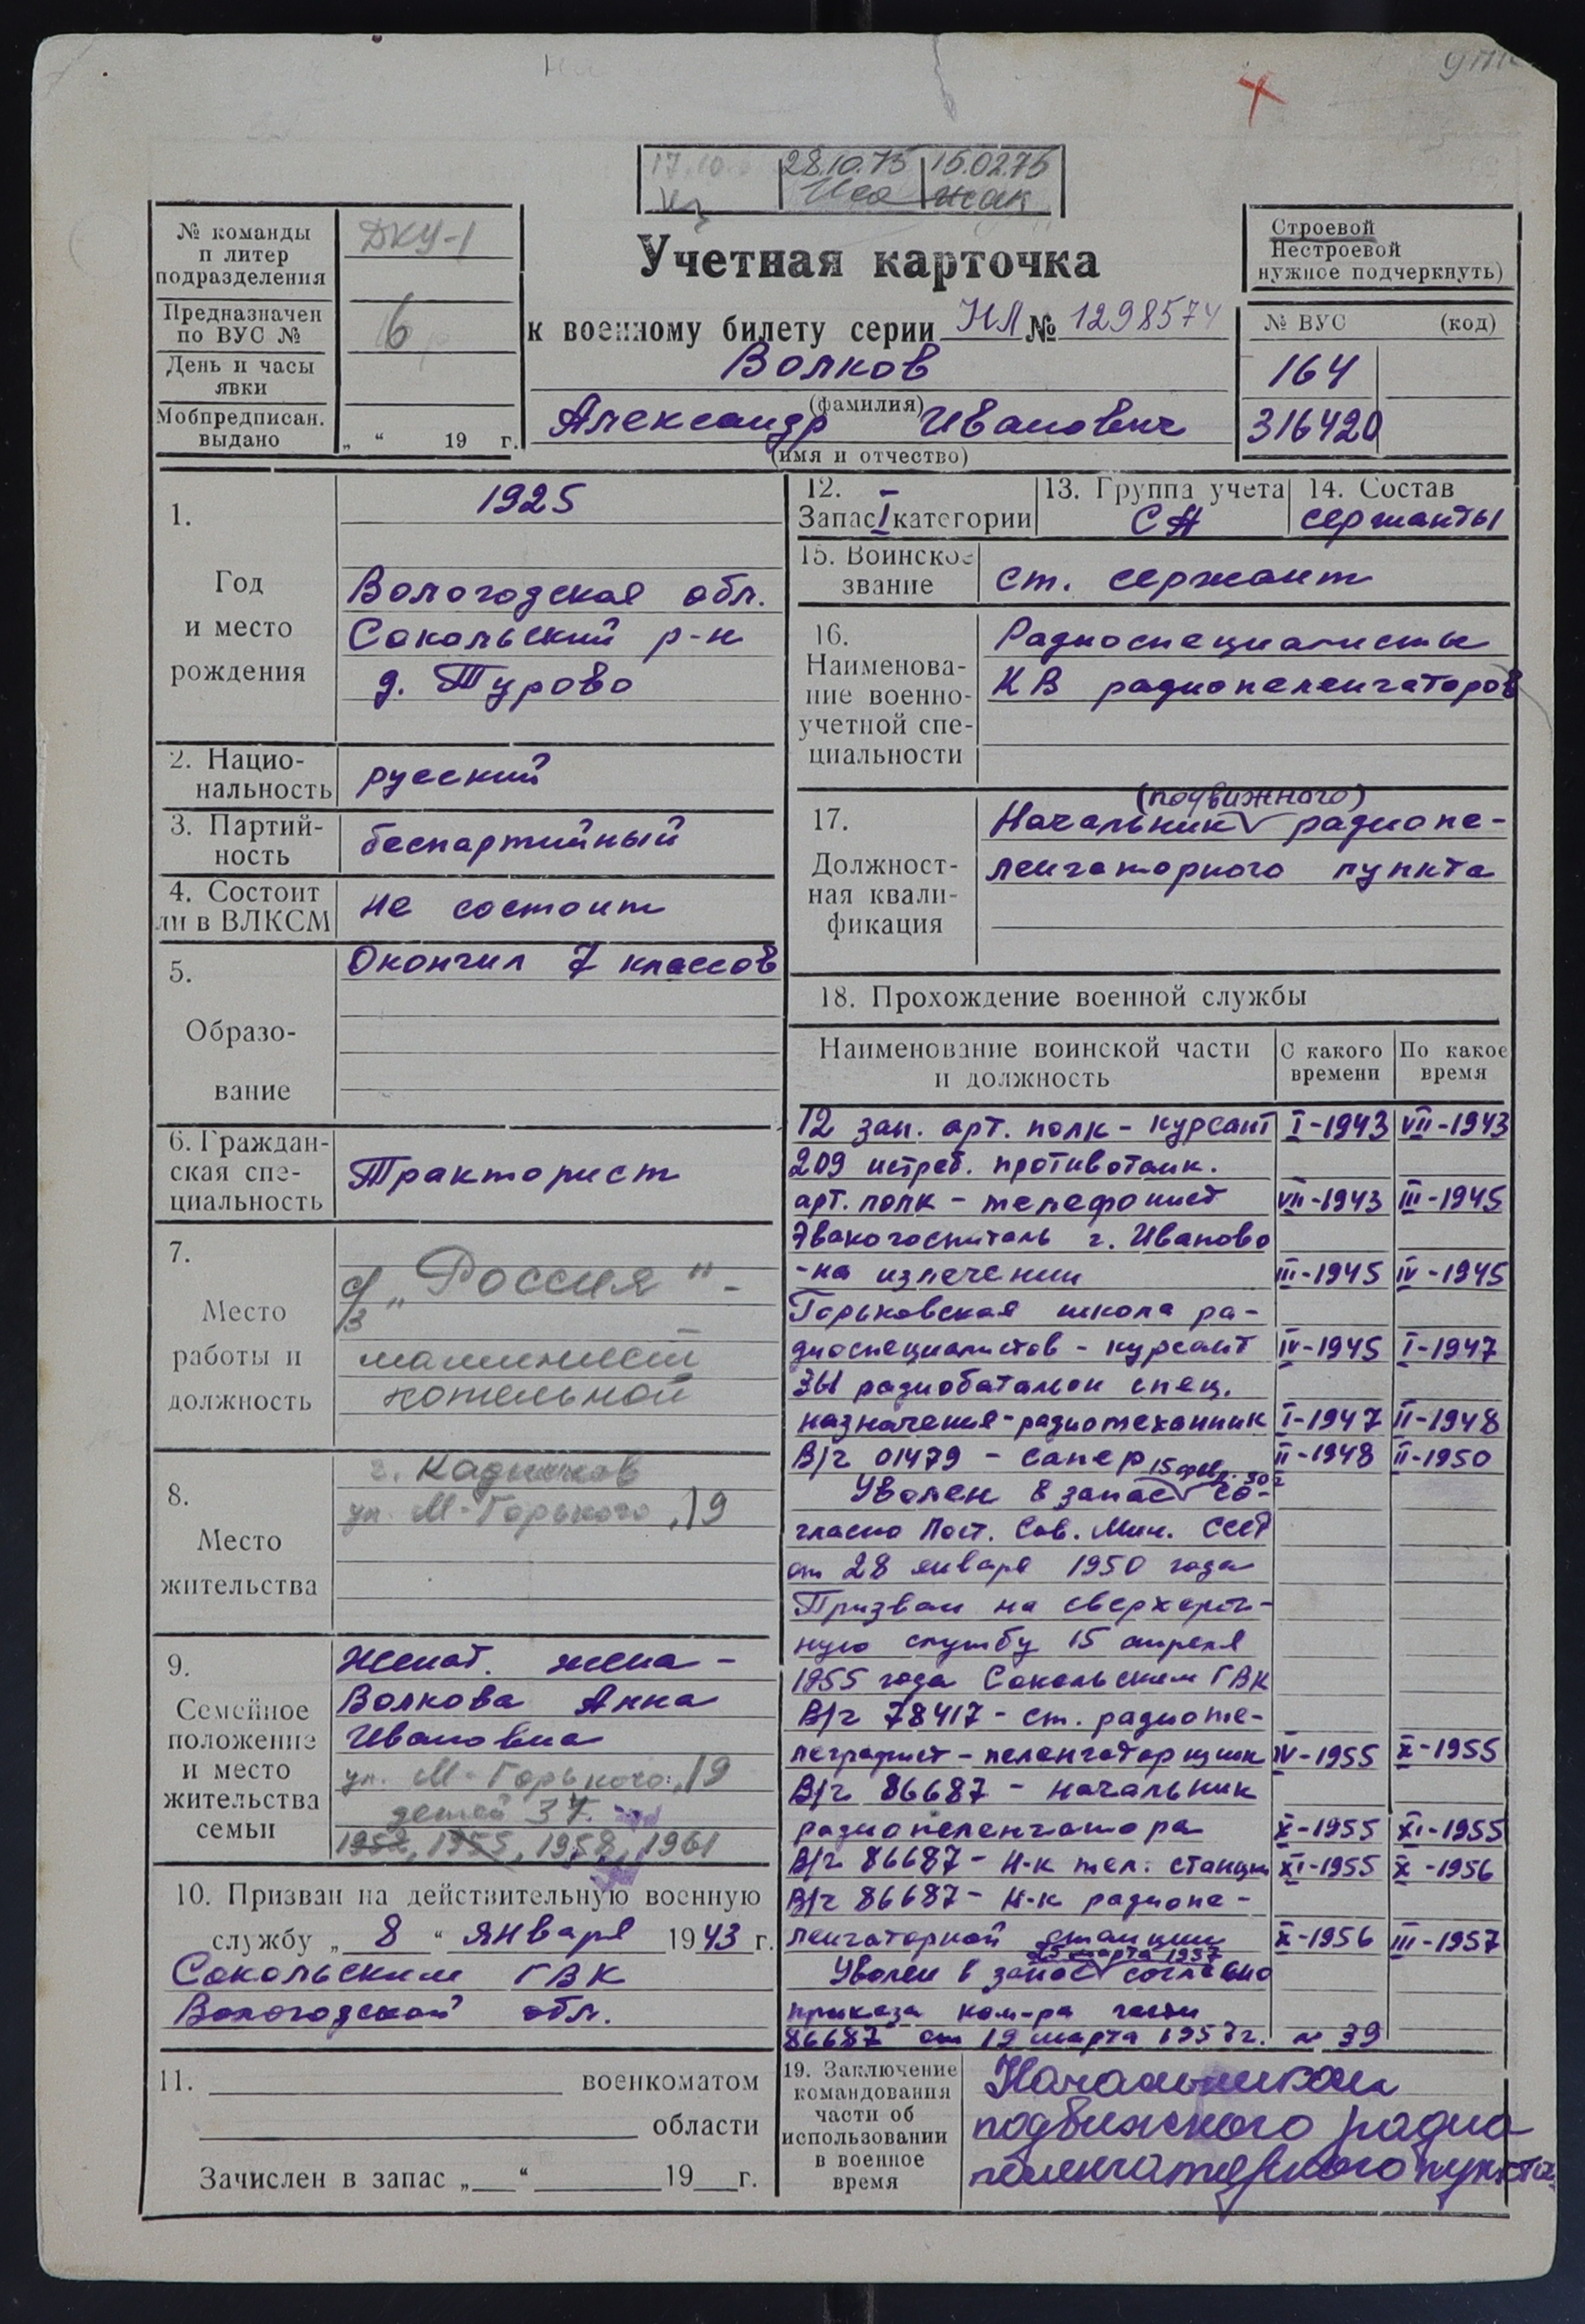 28.10.75 15.02.76
№ команды
и литер
подразделения
ДКУ-1
Предназначен
по ВУС №
6
День и часы
явки
Мобпредписан.
выдано
„ “ 19 г.
Учетная карточка
к военному билету серии НЛ № 1298574
Волков
(фамилия)
Александр Иванович
(имя и отчество)
Строевой
Нестроевой
нужное подчеркнуть)
№ ВУС (код)
164
316420
1.
Год
и место
рождения
1925
Вологодская обл.
Сокольский р-н
д. Турово
2. Нацио-
нальность
русский
3. Партий-
ность
беспартийный
4. Состоит
ли в ВЛКСМ
не состоит
5.
Образо-
вание
Окончил 7 классов
6. Граждан-
ская спе-
циальность
Тракторист
7.
Место
работы и
должность
с/з „Россия" -
машинист
котельной
8.
Место
жительства
г. Кадников
ул. М-Горького, 19
9.
Семейное
положение
и место
жительства
семьи
Женат. жена -
Волкова Анна
Ивановна
ул. М-Горького, 19
детей 3
1952, 1955, 1958, 1961
10. Призван на действительную военную
службу „ 8 “ января 1943 г.
Сокольским ГВК
Вологодской обл.
11. военкоматом
области
Зачислен в запас „ “ 19 г.
12.
Запас I категории
13. Группа учета
СА
14. Состав
сержанты
15. Воинское
звание
ст. сержант
16.
Наименова-
ние военно-
учетной спе-
циальности
Радиоспециалисты
КВ радиопеленгаторов
17.
Должност-
ная квали-
фикация
(подвижного)
Начальник радиопе-
ленгаторного пункта
18. Прохождение военной службы
Наименование воинской части
и должность
С какого
времени
По какое
время
12 зап. арт. полк - курсант I-1943 VII-1943
209 истреб. противотанк.
арт. полк - телефонист VII-1943 III-1945
Эвакогоспиталь г. Иваново
-на излечении III-1945 IV-1945
Горьковская школа ра-
диоспециалистов - курсант IV-1945 I-1947
ЗЫ радиобатальон спец.
назначения-радиотехнник I-1947 II-1948
В/ч 01479 - сапер II-1948 II-1950
15 февр. 50 г
Уволен в запас со-
гласно Пост. Сов. Мин. СССР
от 28 января 1950 года
Призван на сверхсроч-
ную службу 15 апреля
1955 года Сокольским ГВК
В/ч 78417 - ст. радиоте-
леграфист-пеленгаторщик IV-1955 X-1955
В/ч 86687 - начальник
радиопеленгатора X-1955 XI-1955
В/ч 86687 - Н-к тел. станции XI-1955 X-1956
В/ч 86687 - Н-к радиопе-
ленгаторной станции X-1956 III-1957
25 марта 1957
Уволен в запас согласно
приказа ком-ра части
86687 от 19 марта 1957 г. № 39
19. Заключение
командования
части об
использовании
в военное
время
Начальником
подвижного радио
пеленгаторного пункта